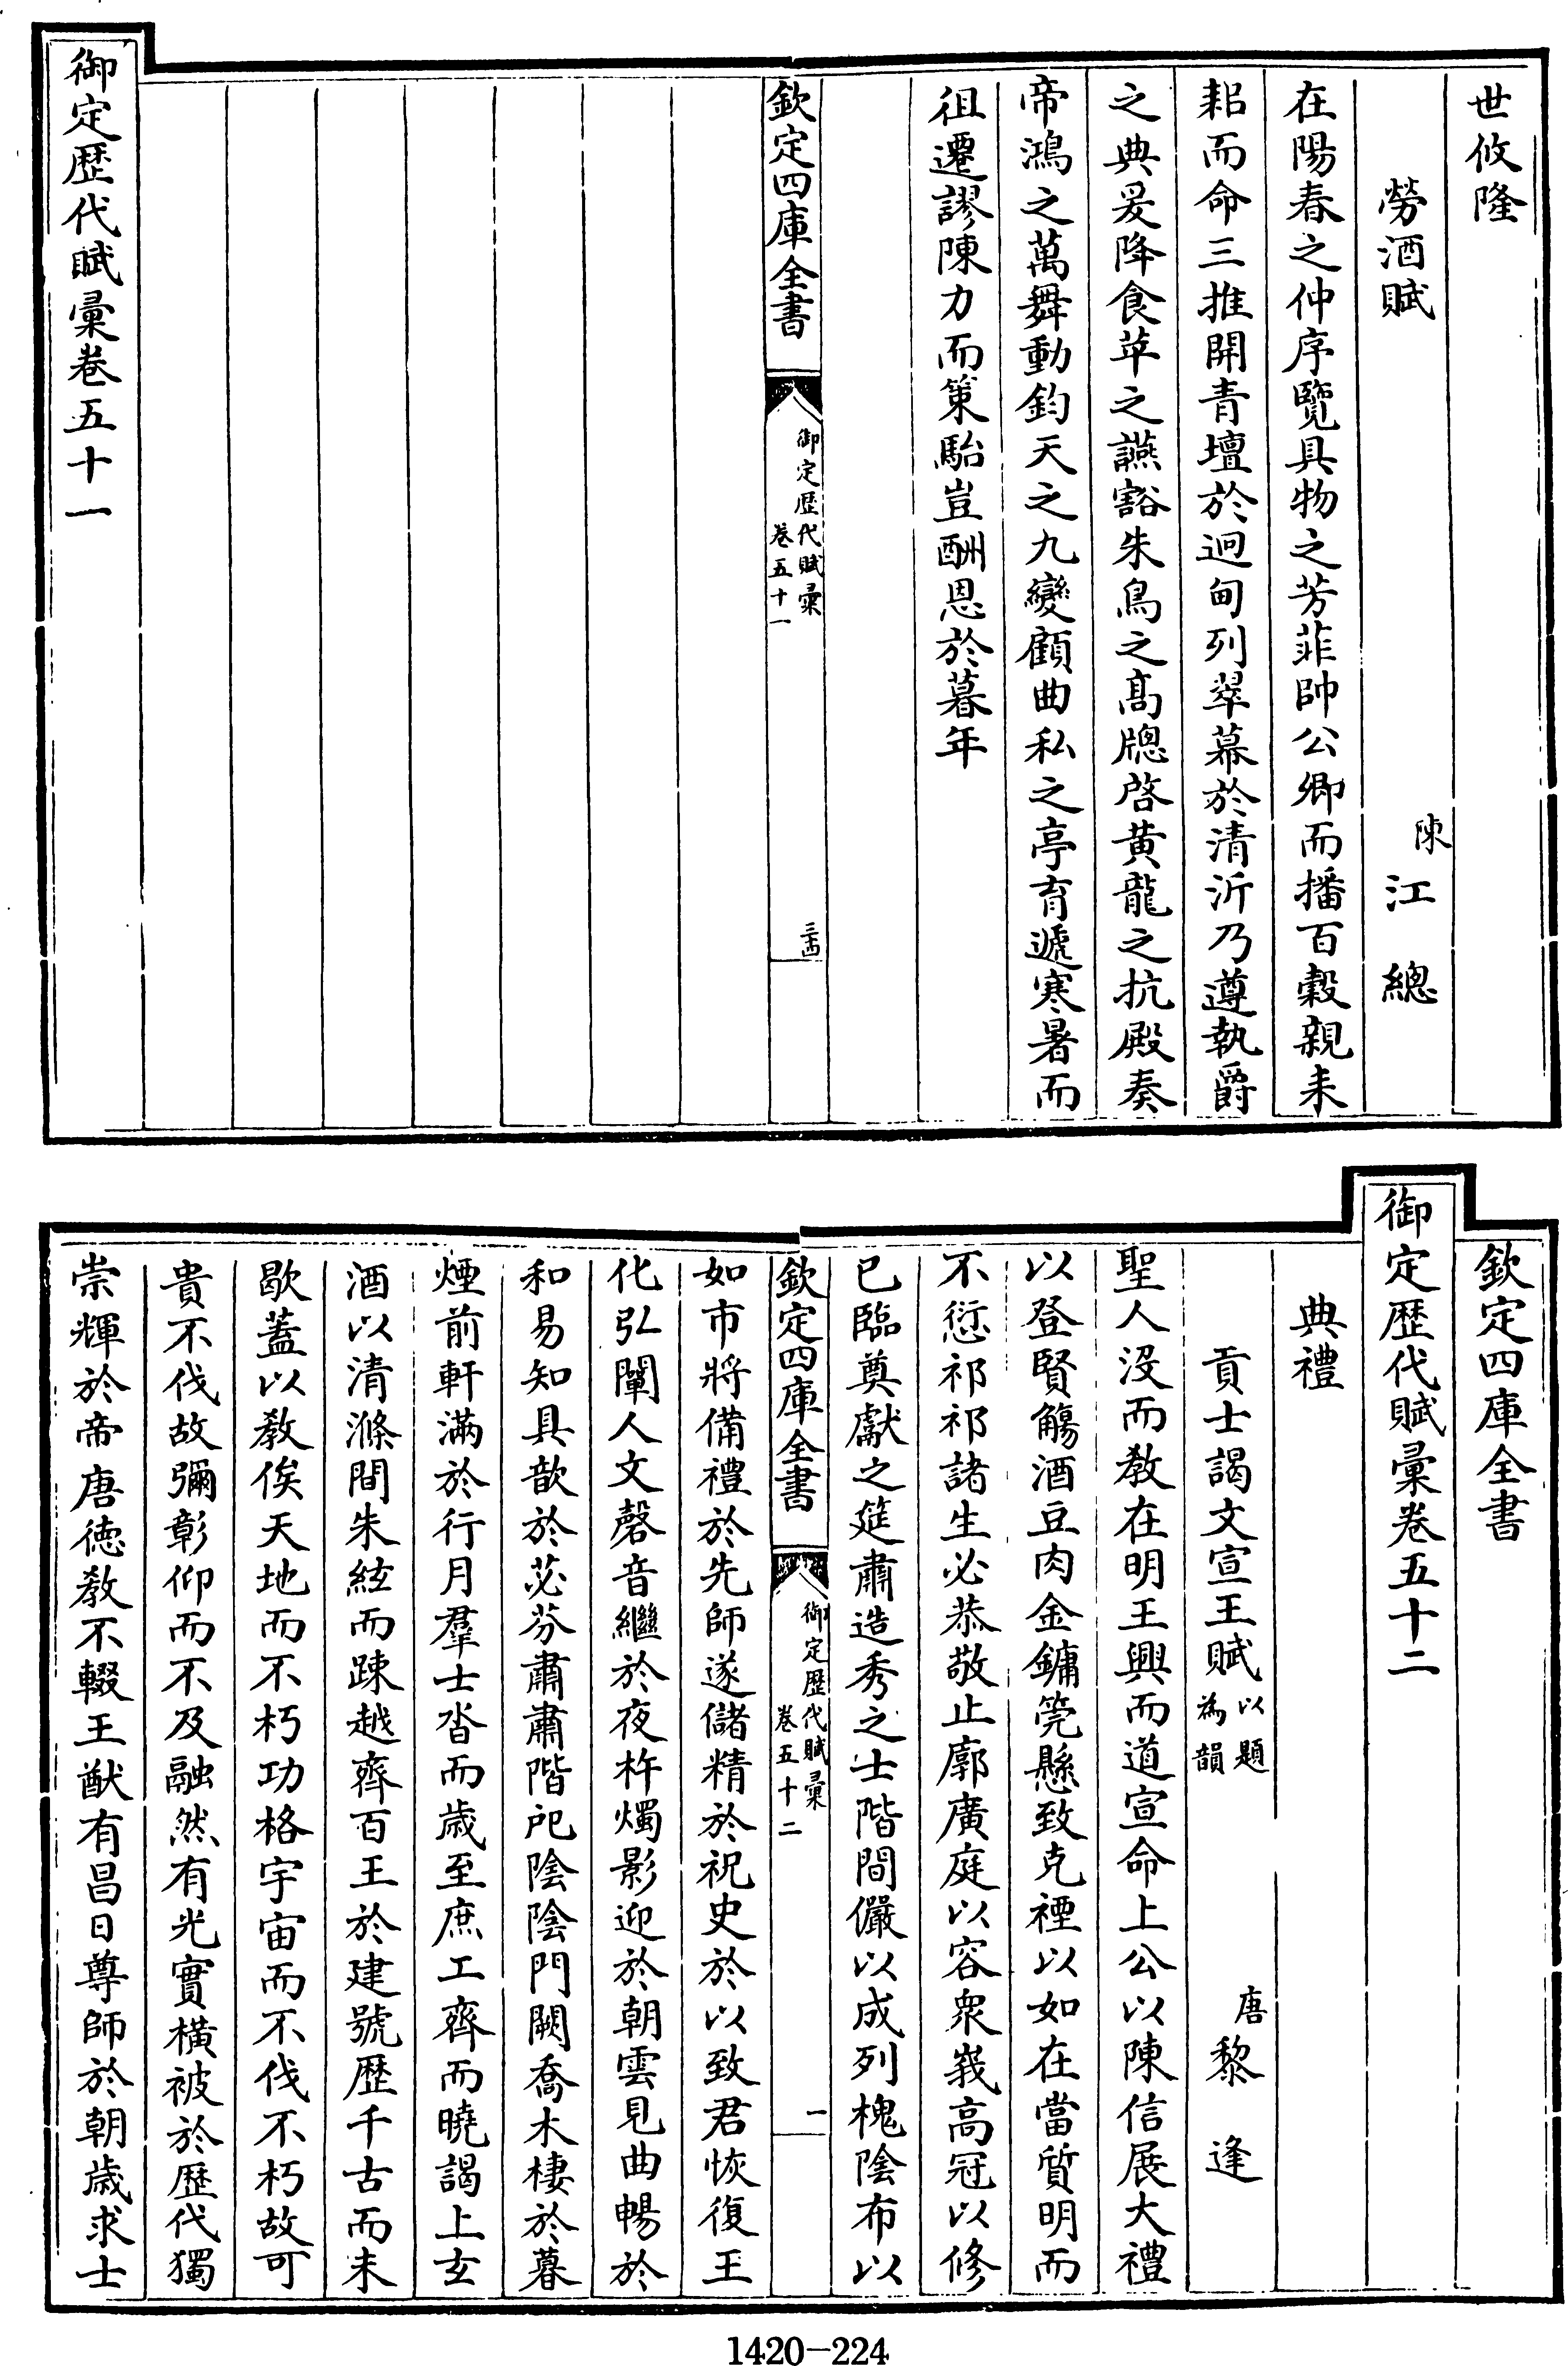 世攸隆
勞酒賦
陳江總
在陽春之仲序覽具物之芳菲帥公卿而播百穀親耒
耜而命三推開青壇於迥甸列翠幕於清沂乃遵執爵
之典爰降食苹之讌豁朱鳥之髙牕啓黄龍之抗殿奏
帝鴻之萬舞動鈞天之九變顧曲私之亭育遞寒暑而
徂遷謬陳力而策駘豈酬恩於暮年
欽定四庫全書
御定歷代賦彙
卷五十一
三十四
御定歷代賦彙卷五十一
欽定四庫全書
御定歷代賦彙卷五十二
典禮
貢士謁文宣王賦以題為韻
唐黎逢
聖人沒而教在明王興而道宣命上公以陳信展大禮
以登賢觴酒豆肉金鏞筦懸致克禋以如在當質明而
不愆祁祁諸生必恭敬止廓廣庭以容衆峩高冠以修
已臨奠獻之筵肅造秀之士階間儼以成列槐陰布以
欽定四庫全書
御定歷代賦彙
卷五十二
一
如市將備禮於先師遂儲精於祝史於以致君恢復王
化弘闡人文磬音繼於夜杵燭影迎於朝雲見曲暢於
和易知具歆於苾芬肅肅階戺陰陰門闕喬木棲於暮
煙前軒滿於行月羣士沓而歳至庶工齊而曉謁上玄
酒以清滌間朱絃而疎越齊百王於建號歷千古而未
歇蓋以教俟天地而不朽功格宇宙而不伐不朽故可
貴不伐故彌彰仰而不及融然有光實橫被於歷代獨
崇輝於帝唐德教不輟王猷有昌日尊師於朝歳求士
1420-224